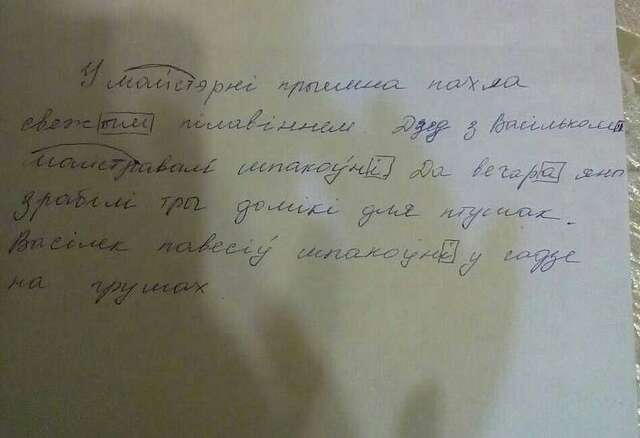 У майстэрні прыемна пахла
свежым пілавіннем. Дзед з Васільком
майстравалі шпакоўні. Да вечара яны
зрабілі тры домікі для птушак.
Васілек павесіў шпакоўні у садзе
на грушах